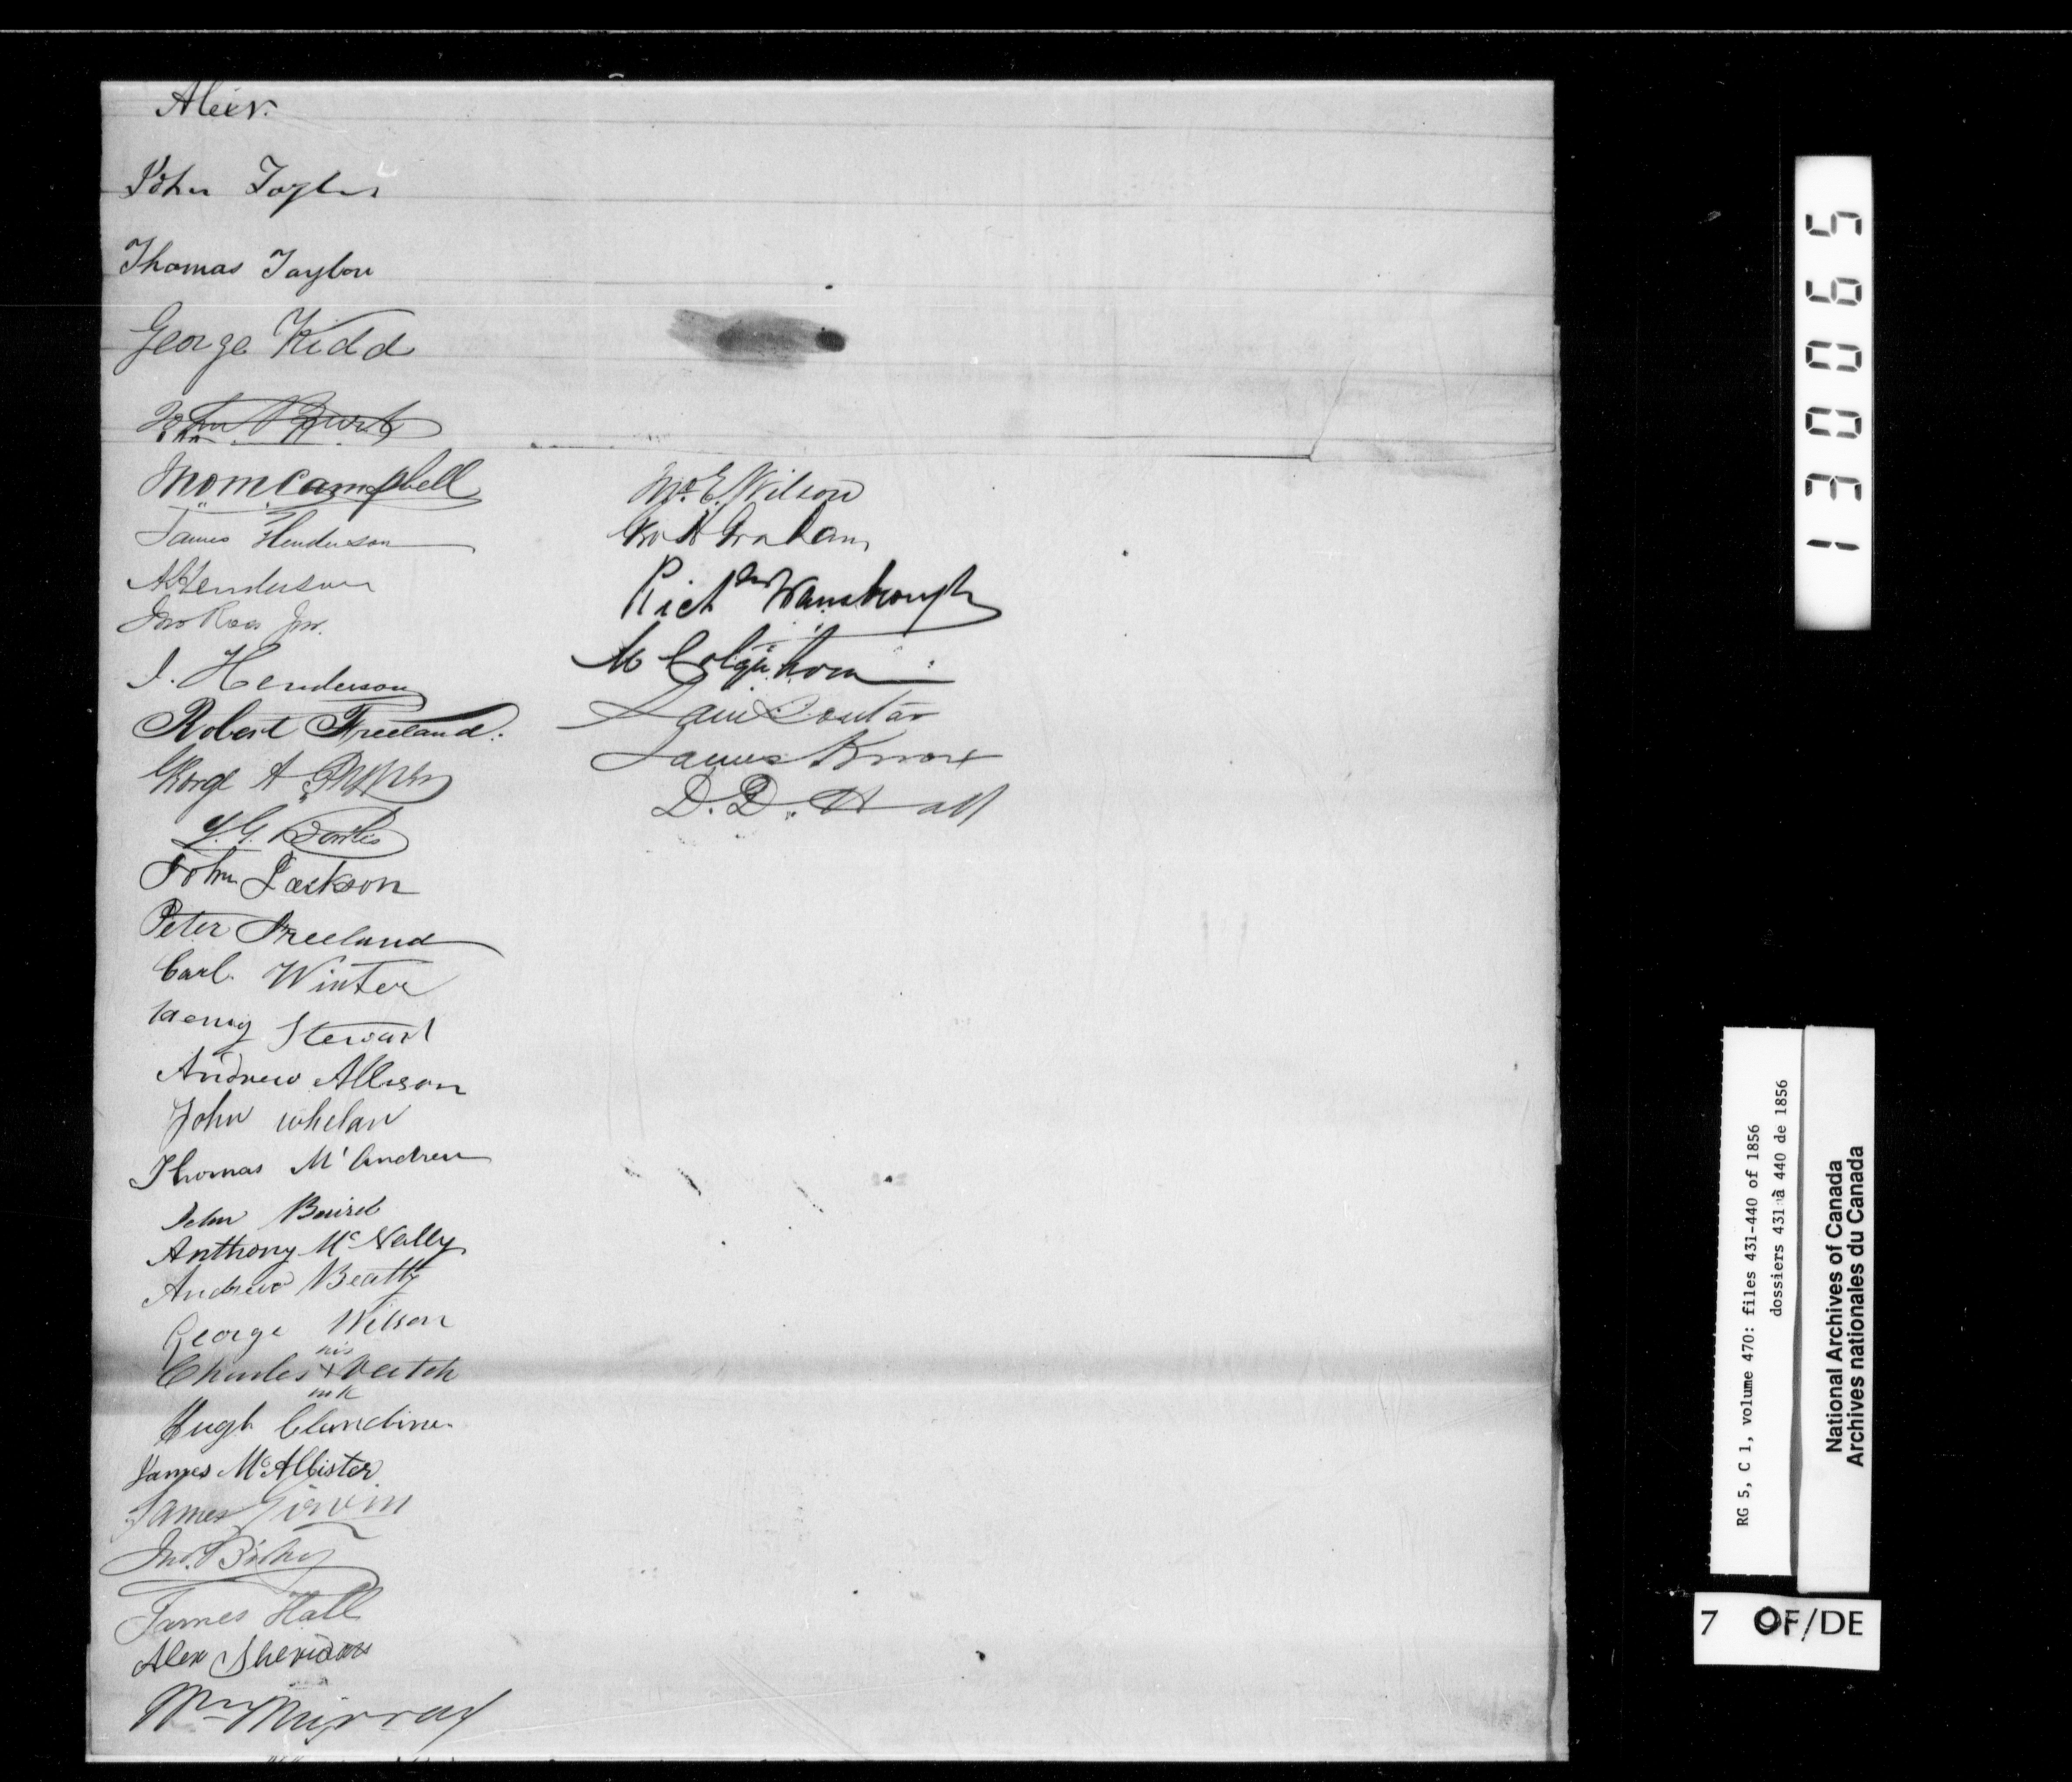 Alexr.
John Taylor
Thomas Taylor
George Kidd
John
Thom Campbell
James Henderson
A Henderson
Jno Ross Jnr.
J. Henderson
Robert Freeland.
George A
J. G.
John Jackson
Peter Freeland
Carl Winter
Henry Stewart
Andrew Allison
John Whelan
Thomas Mc Andrew
John Baird
Anthony Mc Nally
Andrew Beatty
George Wilson
his
Charles + Veitch
mk
Hugh
James McAllister
James Girvin
Jno. Bishop
James Hall
Alex Sheridan
Wm Murray
Jno. E. Wilson
Geo H Graham
Richd Wansbrough
M Colquhoun
Jam Soutar
James Knox
D. D. Hall
130065
RG 5, C 1, volume 470: files 431-440 of 1856
dossiers 431 à 440 de 1856
National Archives of Canada
Archives nationales du Canada
7 OF/DE